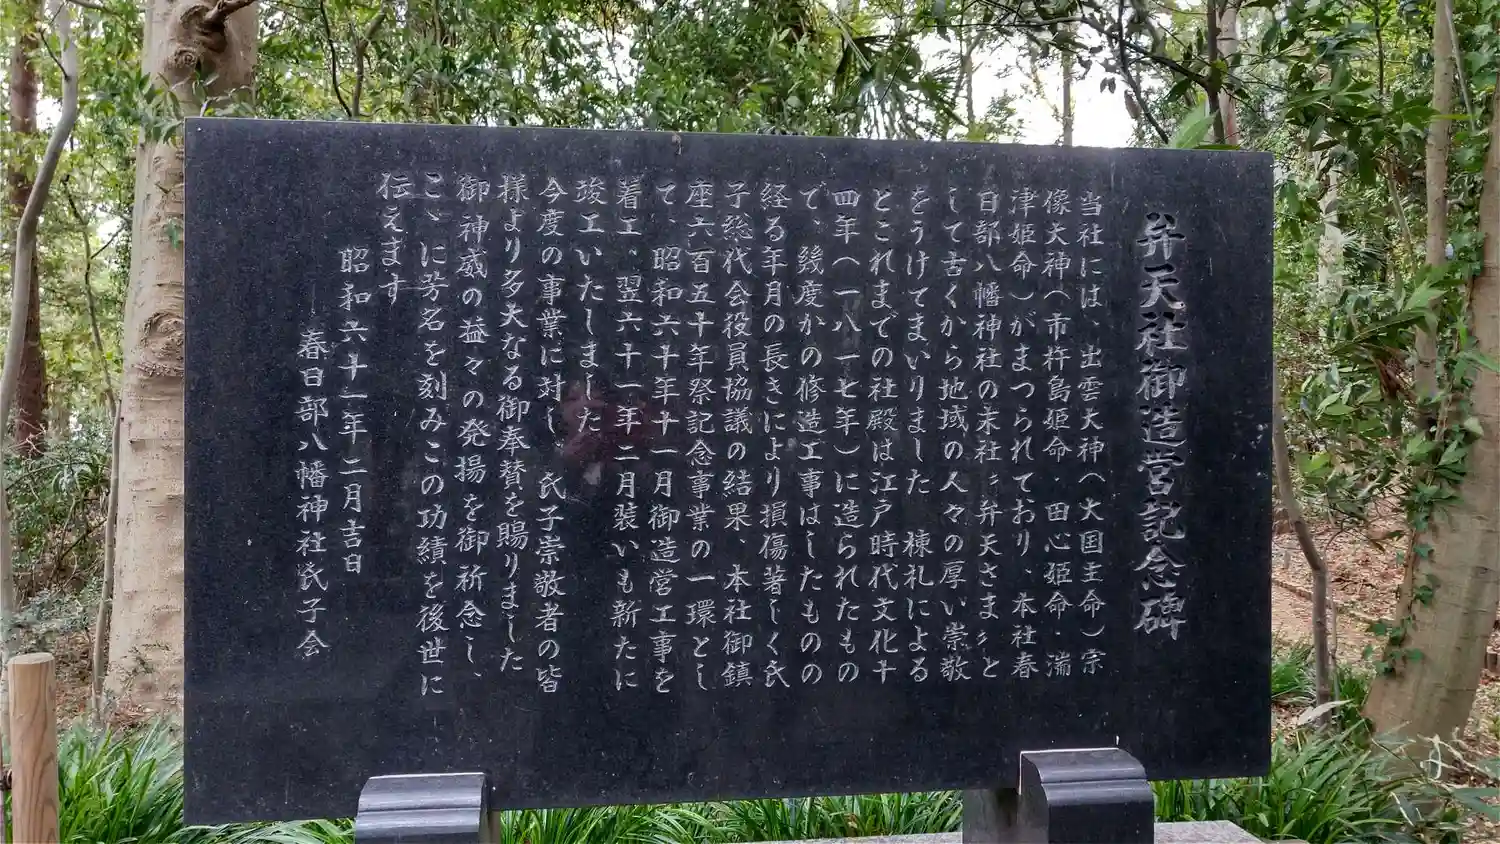 弁天社御造営記念碑
当社には、出雲大神(大国主命)宗
像大神(市杵島姫命・田心姫命・湍
津姫命)がまつられており、本社春
日部八幡神社の末社〝弁天さま〟と
して古くから地域の人々の厚い崇敬
をうけてまいりました 棟札による
とこれまでの社殿は江戸時代文化十
四年(一八一七年)に造られたもの
で、幾度かの修造工事はしたものの
経る年月の長きにより損傷著しく氏
子総代会役員協議の結果、本社御鎮
座六百五十年祭記念事業の一環とし
て、昭和六十年十一月御造営工事を
着工、翌六十一年二月装いも新たに
竣工いたしました
今度の事業に対し、氏子崇敬者の皆
様より多大なる御奉賛を賜りました
御神威の益々の発揚を御祈念し、
こゝに芳名を刻みこの功績を後世に
伝えます
昭和六十一年二月吉日
春日部八幡神社氏子会